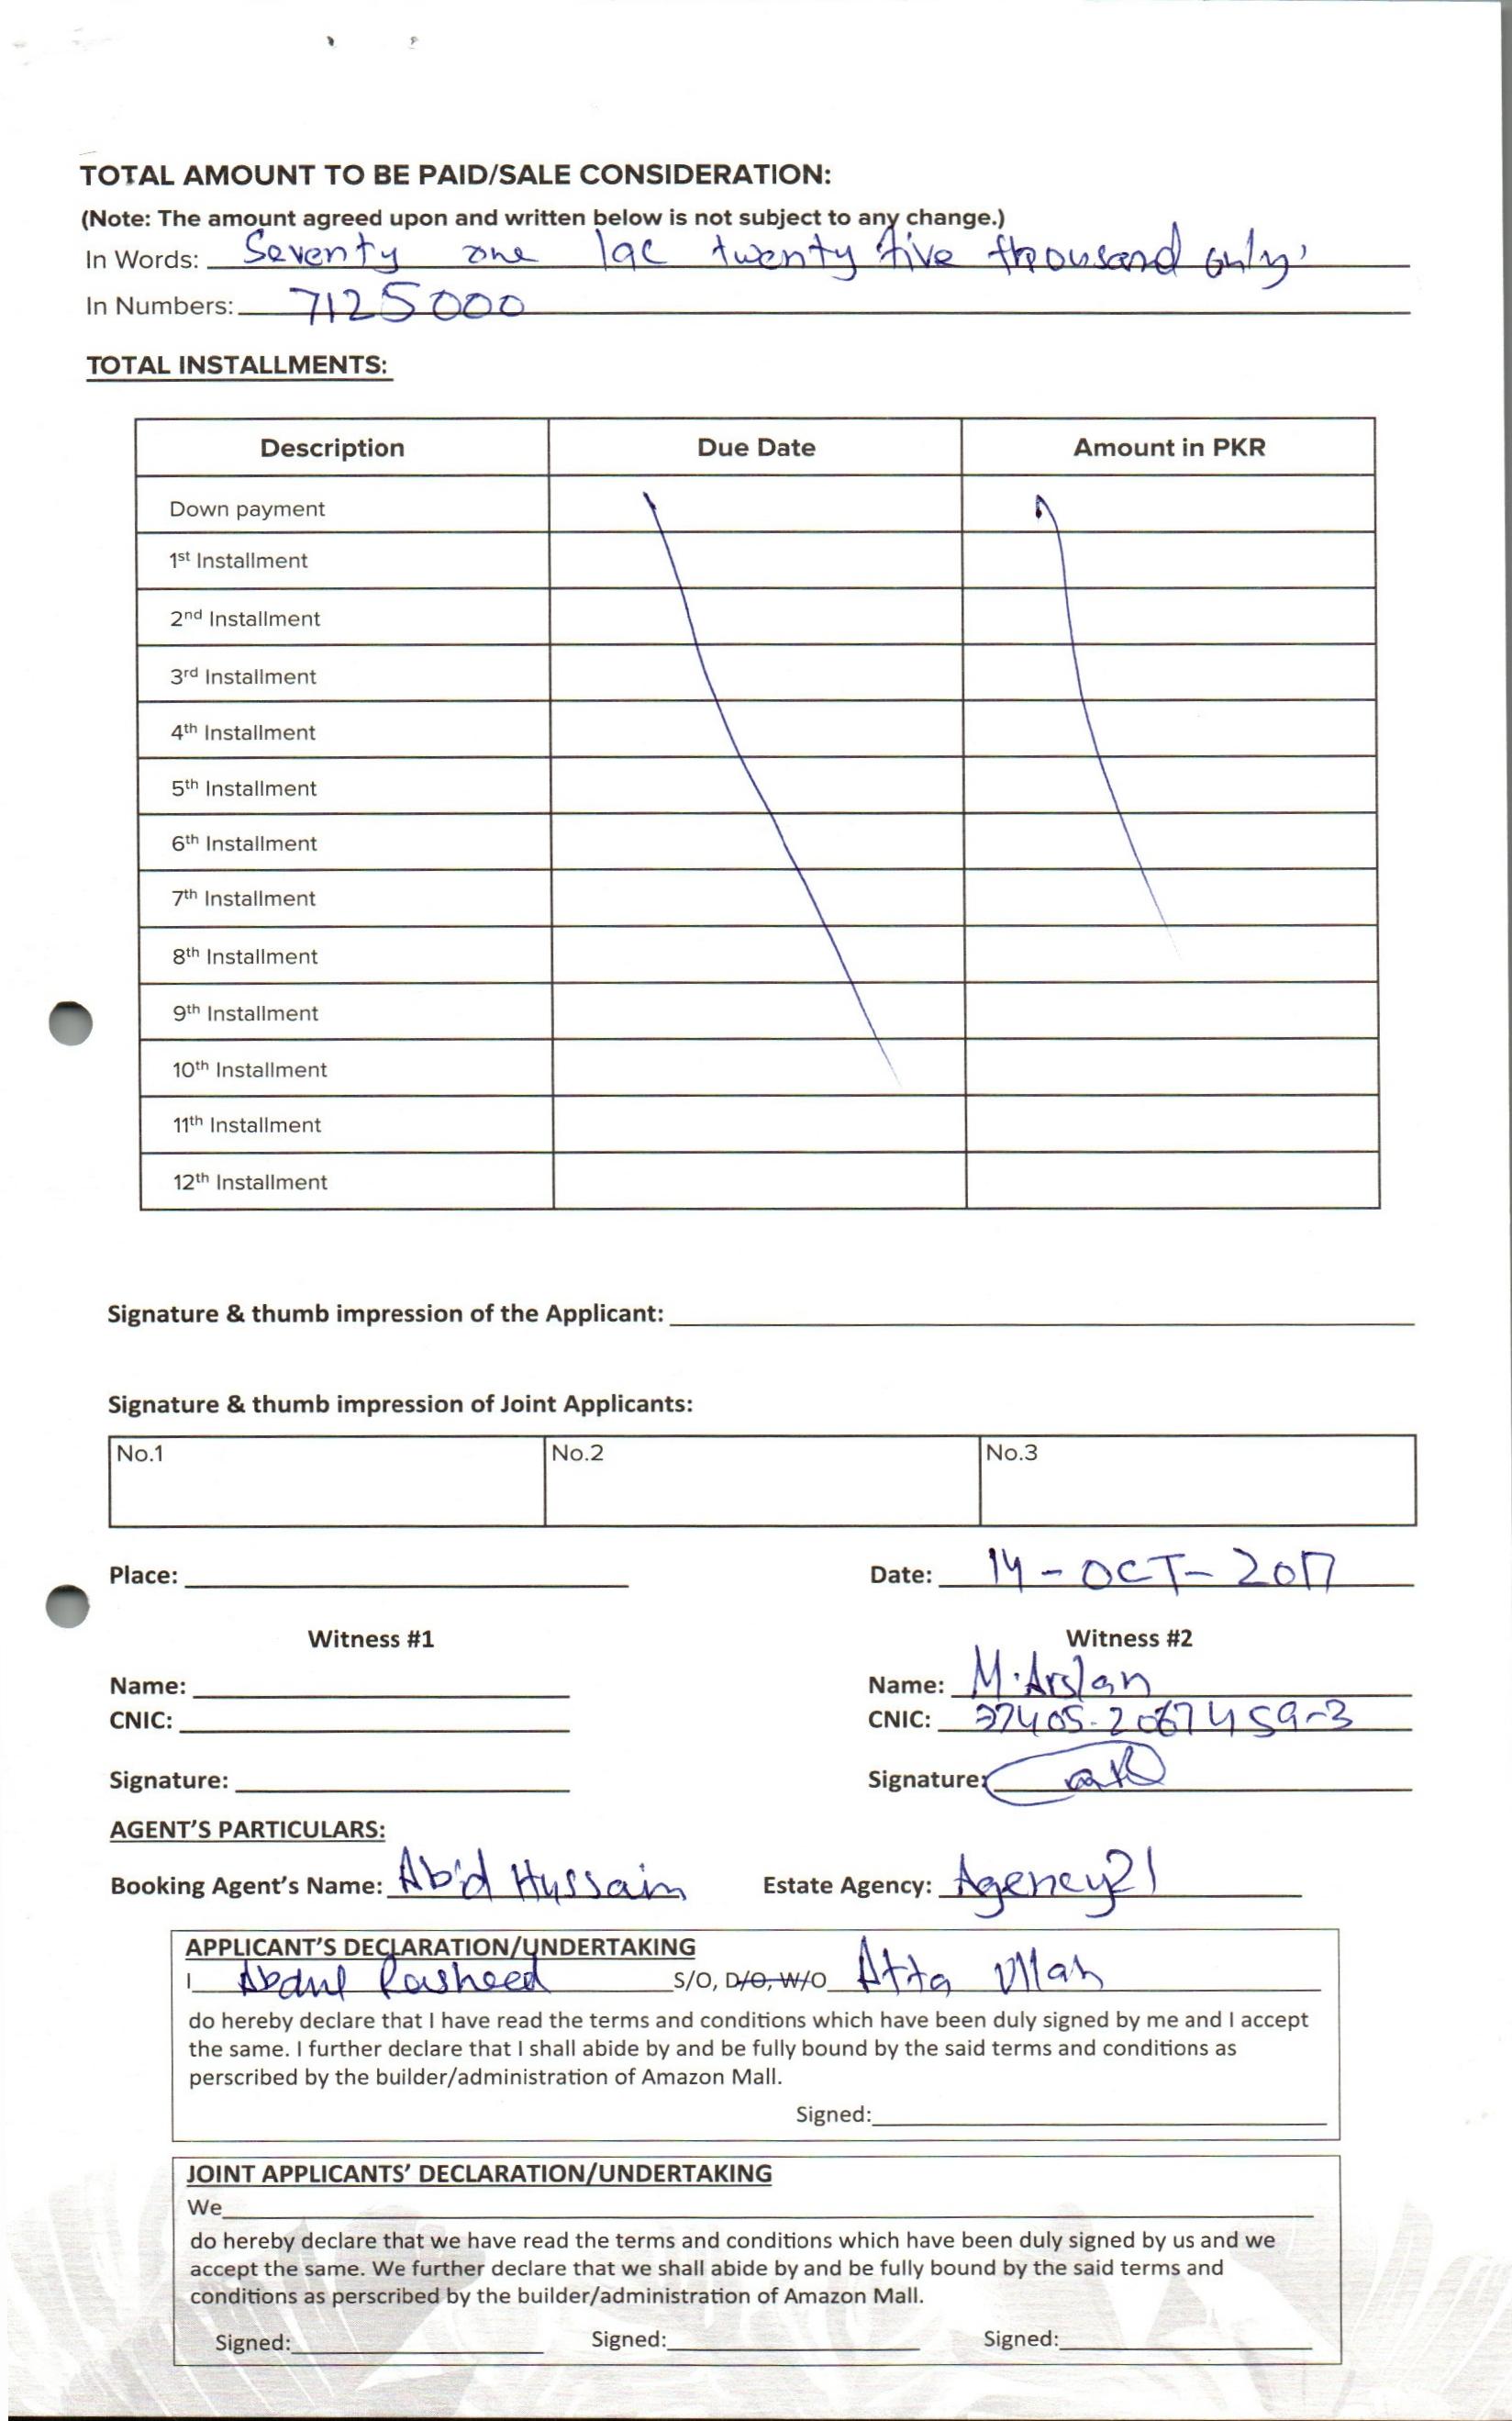 TOTAL AMOUNT TO BE PAID/SALE CONSIDERATION:
(Note: The amount agreed upon and written below is not subject to any change.)
In Words: Seventy one lac twenty five thousand only
In Numbers: 7125000
TOTAL INSTALLMENTS:
Description Due Date Amount in PKR
Down payment
1st Installment
2nd Installment
3rd Installment
4th Installment
5th Installment
6th Installment
7th Installment
8th Installment
9th Installment
10th Installment
11th Installment
12th Installment
Signature & thumb impression of the Applicant:
Signature & thumb impression of Joint Applicants:
No.1 No.2 No.3
Place: Date: 14-OCT-2017
Witness #1 Witness #2
Name: Name: M.Arslan
CNIC: CNIC: 37405-2067459-3
Signature: Signature:
AGENT'S PARTICULARS:
Booking Agent's Name: Abid Hussain Estate Agency: Agency21
APPLICANT'S DECLARATION/UNDERTAKING
I Abdul Rasheed S/O, D/O, W/O Atta Ullah
do hereby declare that I have read the terms and conditions which have been duly signed by me and I accept
the same. I further declare that I shall abide by and be fully bound by the said terms and conditions as
perscribed by the builder/administration of Amazon Mall.
Signed:
JOINT APPLICANTS' DECLARATION/UNDERTAKING
We
do hereby declare that we have read the terms and conditions which have been duly signed by us and we
accept the same. We further declare that we shall abide by and be fully bound by the said terms and
conditions as perscribed by the builder/administration of Amazon Mall.
Signed: Signed: Signed: